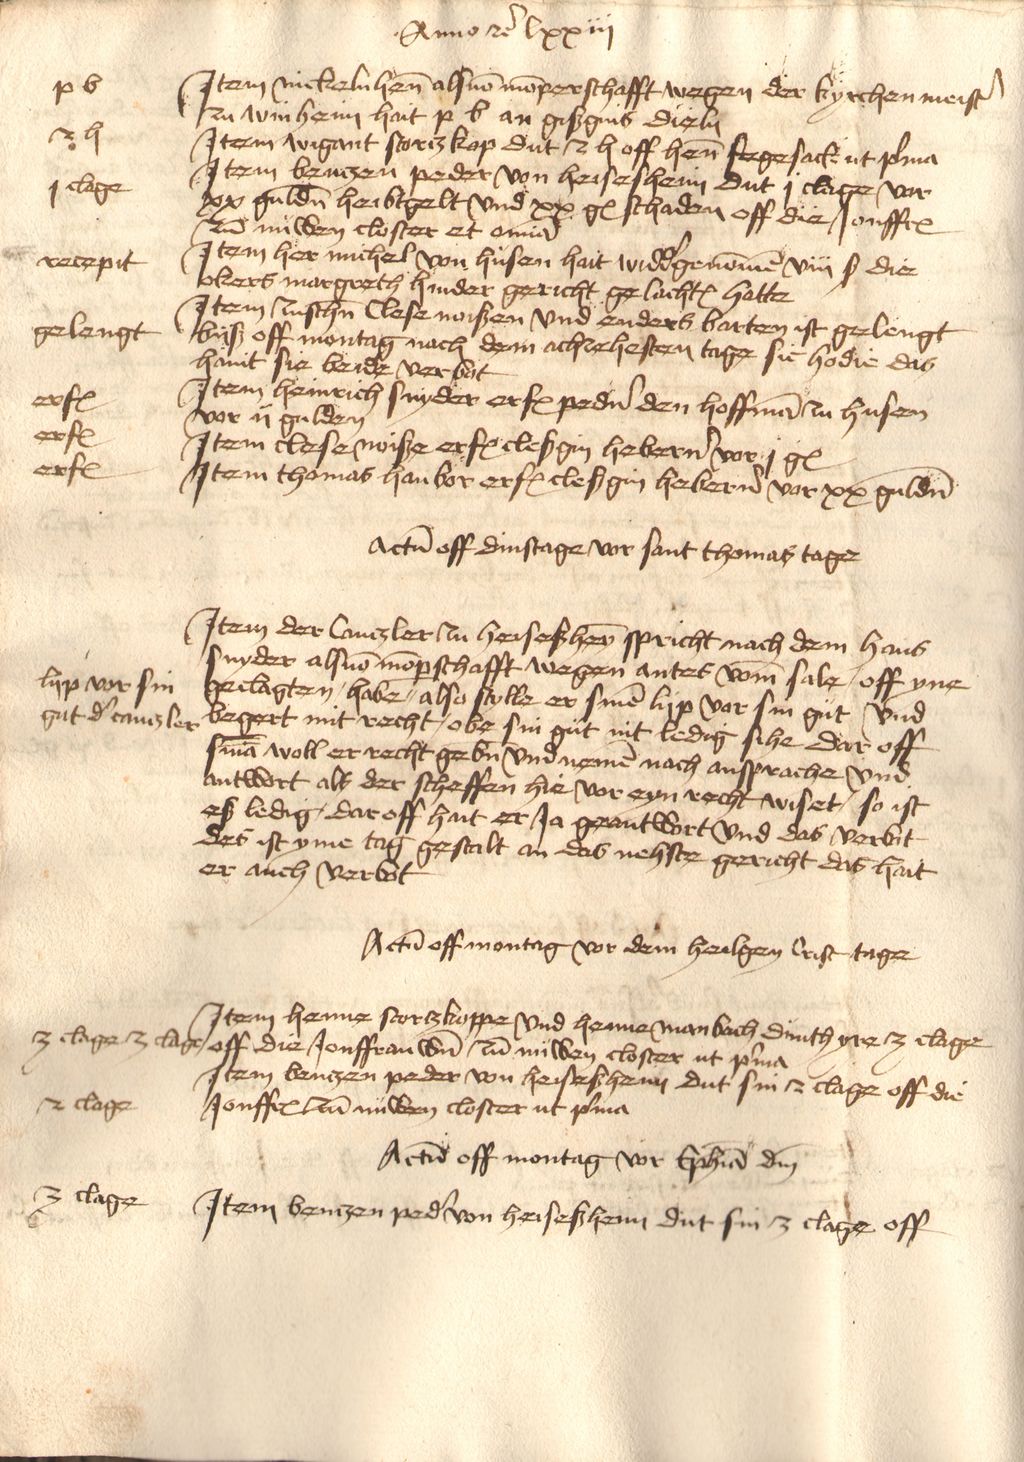 Anno etc lxxiii
p b Item nickeln henn als von momperschafft wegen der kyrchenmeister
zu winheim hait p b an gißgins dieln
2 h Item wigant stortzkop dut 2 h off henn ut prima
1 clage Item bentzen peder von heisesheim dut j clage vor
xx guldn heubtgelt und xx gl schaden off die Jonffr
zum nuwen closter et omnia
recepit Item her michel von husen hait widder genommen viii ß die
margreth hinder gericht gelacht hatte
gelengt Item clese woißen und enders barten ist gelengt
biß off montag nach dem achzehesten tage sie hodie das
haint sie beide verbot
erf Item heinrich snyder erf peder den hoffman zu husen
vor ii gulden
erf Item clese woiße erf cleßgin hebern vor j gl
erf Item thomas hanbor erf cleßgin hebern vor xx guldn
Actum off dinstage vor sant thomas tage
Item der Cantzler zu heiseßheim spricht nach dem hans
snyder als von momperschafft wegen antes vom sale off yne
lijp vor sin geclagten habe also stelle er sinen lijp vor sin gut und
gut der cantzler begert mit recht obe sin gut nit ledig sihe dar off
sman woll er recht gebn und nemen nach ansprache und
antwort als der scheffen hie vor eyn recht wiset so ist
eß ledig dar off hait er Ja geantwort und das verbot
des ist yme tag gestalt an das nehste gericht das hait
er auch verbot
Actum off montag vor dem heilgen Crist tage
3 clage 3 clage Item henne stortzkoppe und henne manbach dinth yre 3 clage
off die Jonffrauwen zum nuwen closter ut prima
2 clage Item bentzen peder von heiseßheim dut sin 2 clage off die
Jonffr zum nuwen closter ut prima
Actum off montag vor Epiphanie domini
3 clage Item bentzen peder von heiseßheim dut sin 3 clage off